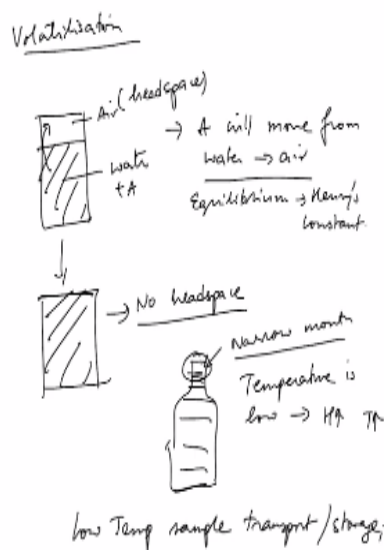 Volatilisation
Air (headspace)
→ A will move from
water → air
water
+ A
Equilibrium → Henry's
constant.
→ No headspace
Narrow mouth
Temperature is
low → H↑ T↑
Low Temp sample transport/storage,